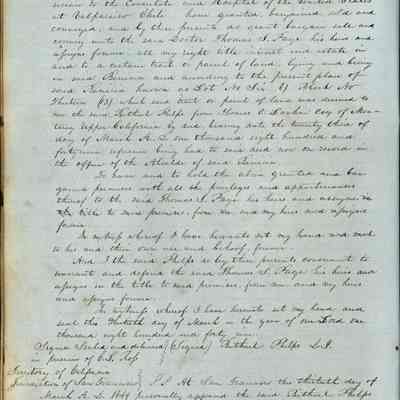 vices to the Consulate and Hospital of the United States
at Valparaiso Chile have granted, bargained sold and
conveyed, and by these presents do grant bargain sell and
convey unto the said Doctor Thomas S. Page his heirs and
assigns forever all my right title interest and estate in
and to a certain tract or parcel of land lying and being
in said Benicia and according to the present plan of
said Benicia known as Lot No Six (6) Block No
Thirteen (13) which said tract or parcel of land was deeded to
me the said Bethuel Phelps from Thomas O. Larkin Esq of Mon-
terey Upper California by deed bearing date the twenty third of
day of March A. D. one thousand eight hundred and
forty nine reference being had to said deed now on record in
the office of the Alcalde of said Benicia.
To have and to hold the above granted and bar-
gained premises with all the privileges and appurtenances
thereof to the said Thomas S. Page his heirs and assigns
title to said premises from me and my heirs and assigns
forever
In witness whereof I have hereunto set my hand and seal
to his and their own use and behoof, forever.
And I the said Phelps do by these presents covenant to
warrant and defend the said Thomas S. Page his heirs and
assigns in the title to said premises from me and my heirs
and assigns forever
In witness whereof I have hereunto set my hand and
seal this Thirtieth day of March in the year of our Lord one
thousand eight hundred and forty nine.
Signed Sealed and delivered (Signed) Bethuel Phelps L.S.
in presence of
Territory of California
Jurisdiction of San Francisco } S.S. At San Francisco the thirtieth day of
March A. D. 1849 personally appeared the said Bethuel Phelps